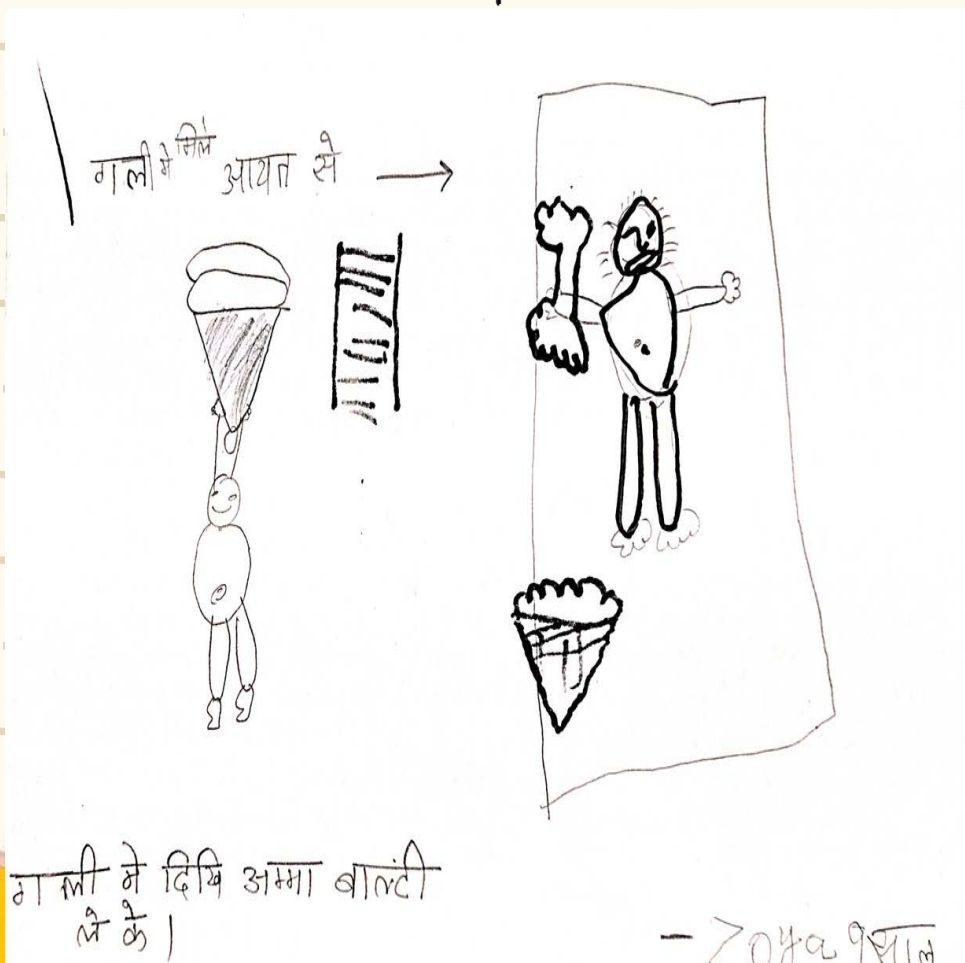 गली मे मिले आयत से
गली मे दिखि अम्मा बाल्टी
ले के।
- Zoya 9 साल